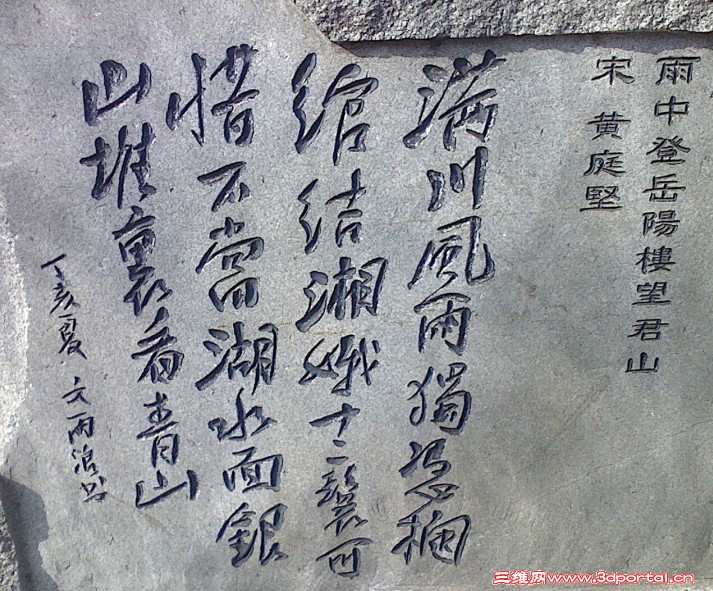 雨中登岳陽樓望君山
宋 黄庭堅
满川風雨獨憑欄
綰結湘娥十二鬟可
惜不當湖水面銀
山堆裏看青山
丁亥夏 文雨治书
三维网www.3dportal.cn